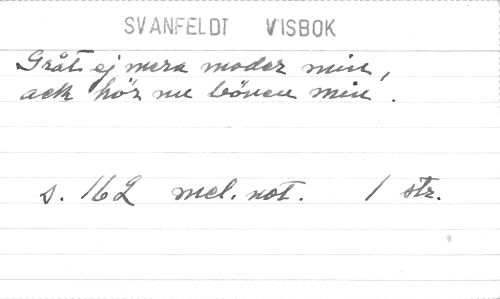 SVANFELDT VISBOK
Gråt ej mera moder min,
ack hör nu bönen min.
s. 162 mel. not. 1 str.